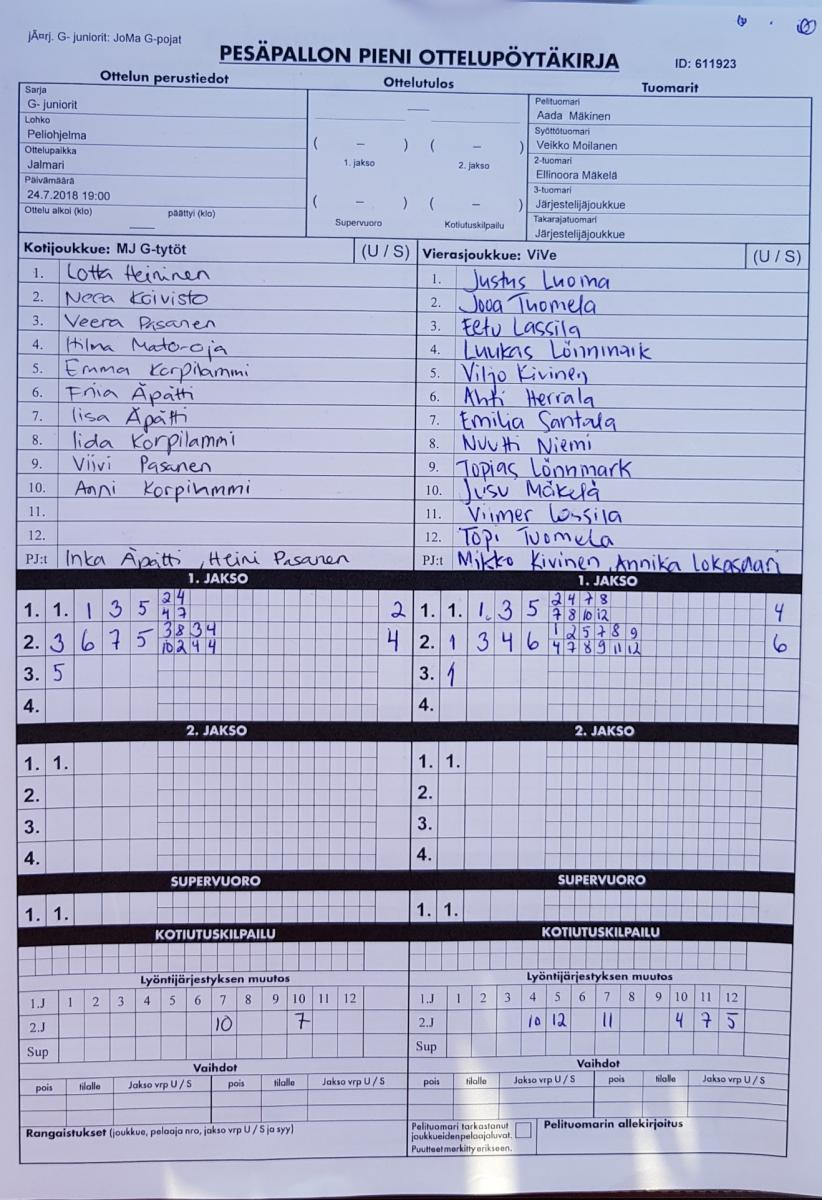 jÃ¤rj. G- juniorit: JoMa G-pojat
PESÄPALLON PIENI OTTELUPÖYTÄKIRJA
ID: 611923
Ottelun perustiedot
Sarja
G- juniorit
Lohko
Peliohjelma
Ottelupaikka
Jalmari
Päivämäärä
24.7.2018 19:00
Ottelu alkoi (klo) päättyi (klo)
Ottelutulos
—
( – ) ( – )
1. jakso 2. jakso
( – ) ( – )
Supervuoro Kotiutuskilpailu
Tuomarit
Pelituomari
Aada Mäkinen
Syöttötuomari
Veikko Moilanen
2-tuomari
Ellinoora Mäkelä
3-tuomari
Järjestelijäjoukkue
Takarajatuomari
Järjestelijäjoukkue
Kotijoukkue: MJ G-tytöt (U / S)
1. Lotta Heininen
2. Neea Koivisto
3. Veera Pasanen
4. Hilma Mato-oja
5. Emma Korpilammi
6. Enia Äpätti
7. Iisa Äpätti
8. Iida Korpilammi
9. Viivi Pasanen
10. Anni Korpilammi
11.
12.
PJ:t Inka Äpätti, Heini Pasanen
Vierasjoukkue: ViVe (U / S)
1. Justus Luoma
2. Jooa Tuomela
3. Eetu Lassila
4. Luukas Lönnmark
5. Viljo Kivinen
6. Ahti Herrala
7. Emilia Santala
8. Nuutti Niemi
9. Topias Lönnmark
10. Jusu Mäkelä
11. Viimer Lassila
12. Topi Tuomela
PJ:t Mikko Kivinen, Annika Lokasaari
1. JAKSO
1. 1. 1 3 5 2 4 2
4 7
2. 3 6 7 5 3 8 3 4 4
10 2 4 4
3. 5
4.
1. JAKSO
1. 1. 1. 3 5 2 4 7 8 4
7 8 10 12
2. 1 3 4 6 1 2 5 7 8 9 6
4 7 8 9 11 12
3. 1
4.
2. JAKSO
1. 1.
2.
3.
4.
2. JAKSO
1. 1.
2.
3.
4.
SUPERVUORO
1. 1.
SUPERVUORO
1. 1.
KOTIUTUSKILPAILU
Lyöntijärjestyksen muutos
1.J 1 2 3 4 5 6 7 8 9 10 11 12
2.J 10 7
Sup
Vaihdot
pois tilalle Jakso vrp U / S pois tilalle Jakso vrp U / S
KOTIUTUSKILPAILU
Lyöntijärjestyksen muutos
1.J 1 2 3 4 5 6 7 8 9 10 11 12
2.J 10 12 11 4 7 5
Sup
Vaihdot
pois tilalle Jakso vrp U / S pois tilalle Jakso vrp U / S
Rangaistukset (joukkue, pelaaja nro, jakso vrp U / S ja syy)
Pelituomari tarkastanut
joukkueiden pelaajaluvat.
Puutteet merkitty erikseen.
Pelituomarin allekirjoitus